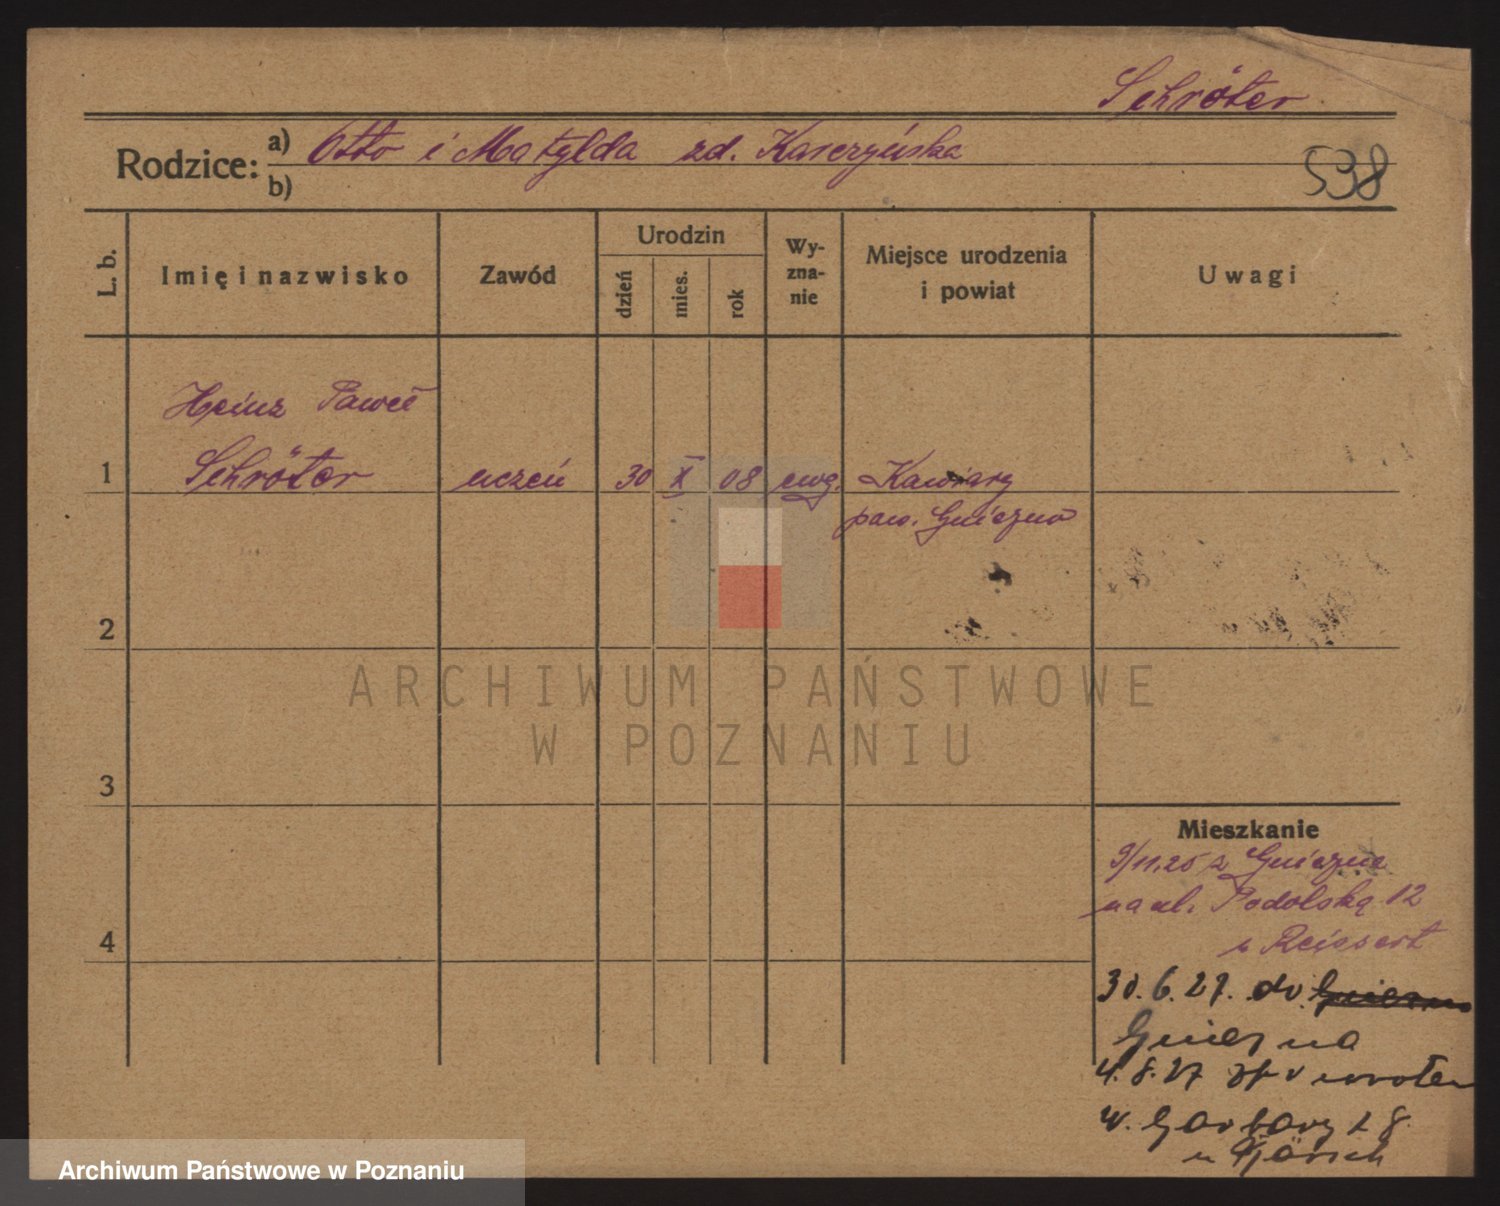 Schröter
Rodzice: a) Otto i Matylda zd. Kaczyńska
b)
538
L. b.
Imię i nazwisko
Zawód
Urodzin
dzień
mies.
rok
Wy-
zna-
nie
Miejsce urodzenia
i powiat
Uwagi
Heinz Paweł
1 Schröter uczeń 30 X 08 ewg. Kawiary
pow. Gniezno
2
3
4
Mieszkanie
9/11.25 z Gniezna
na ul. Podolską 12
u Reissert
30.6.27. do Gniezno
Gniezna
4.8.27
w. Garbary 18.
u
ARCHIWUM PAŃSTWOWE
W POZNANIU
Archiwum Państwowe w Poznaniu